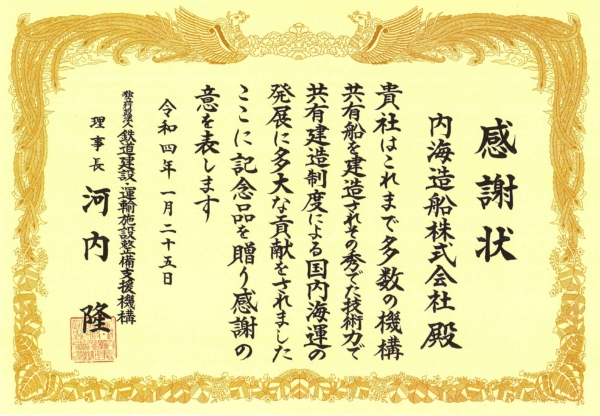 感謝状
内海造船株式会社 殿
貴社はこれまで多数の機構
共有船を建造されその秀でた技術力で
共有建造制度による国内海運の
発展に多大な貢献をされました
ここに記念品を贈り感謝の
意を表します
令和四年一月二十五日
独立行政法人 鉄道建設・運輸施設整備支援機構
理事長 河内 隆